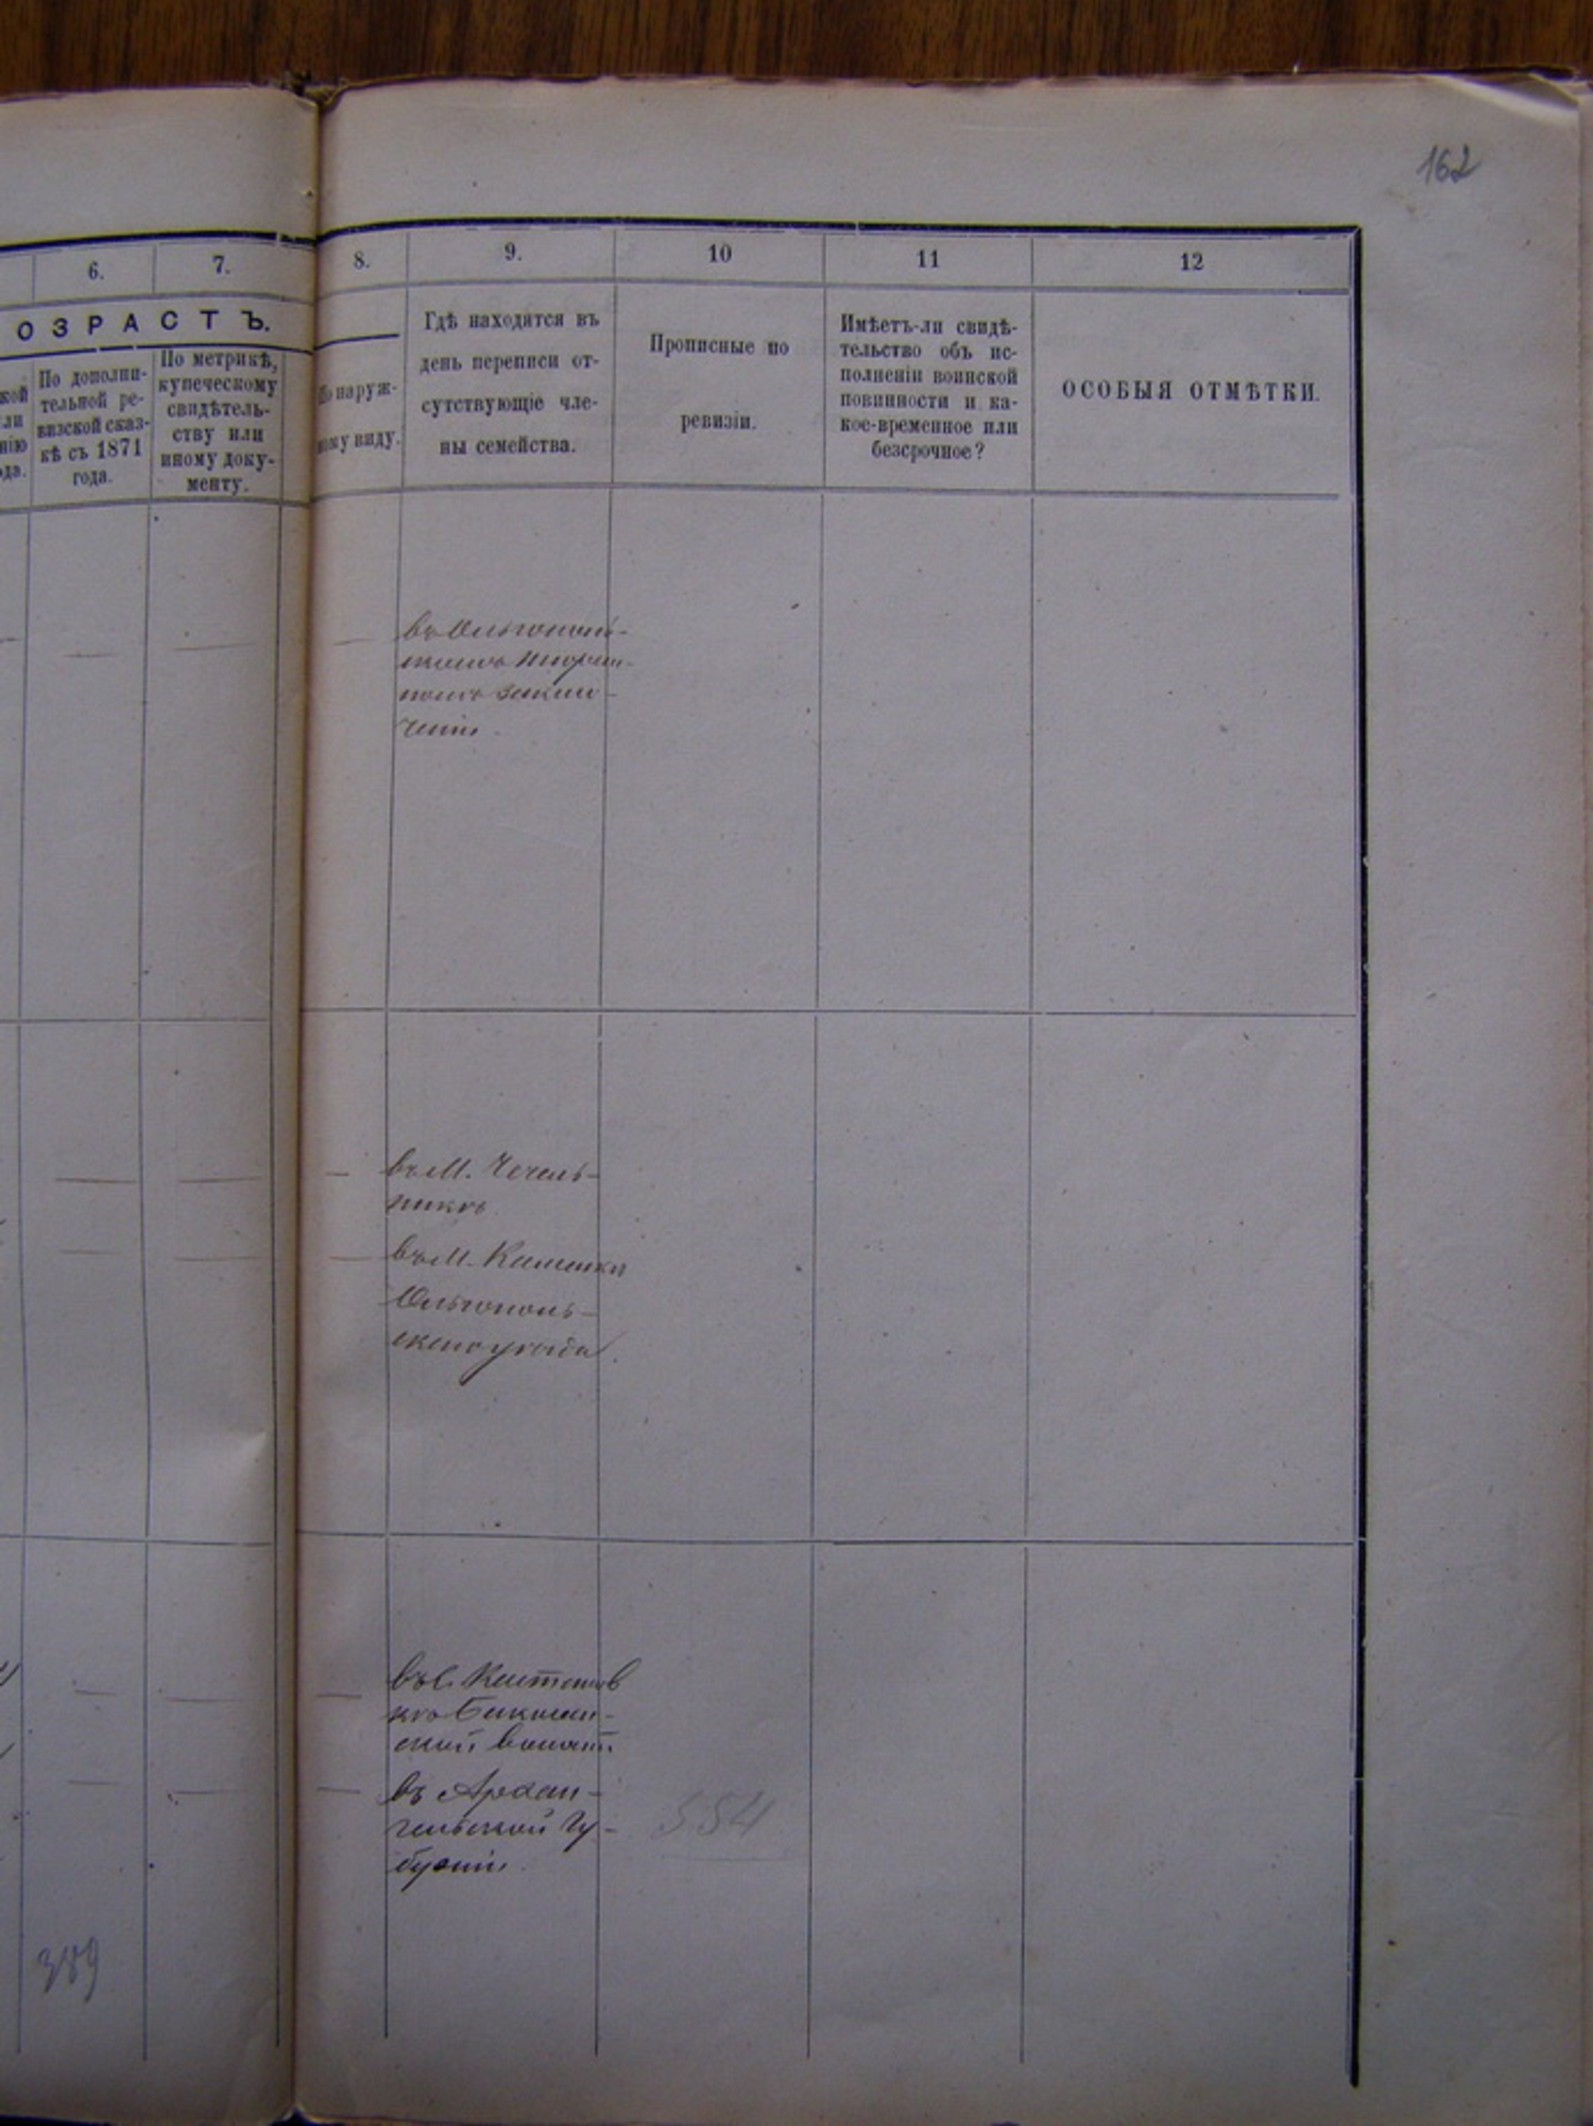 162
6.
7.
8.
9.
10
11
12
ОЗРАСТЪ.
кой
ли
нію
ода.
По дополни-
тельной ре-
визской сказ-
кѣ съ 1871
года.
По метрикѣ,
купеческому
свидѣтель-
ству или
иному доку-
менту.
По наруж-
ному виду.
Гдѣ находятся въ
день переписи от-
сутствующіе чле-
ны семейства.
Прописные по
ревизіи.
Имѣетъ-ли свидѣ-
тельство объ ис-
полненіи воинской
повинности и ка-
кое-временное или
безсрочное?
ОСОБЫЯ ОТМѢТКИ.
въ Ольгополь-
скомъ тюрем-
номъ заклю-
ченіи.
въ М. Чечель-
никѣ.
въ М. Каменкѣ
Ольгополь-
скаго уѣзда.
въ С.
кѣ
ской волости
въ Архан-
гельской гу-
берніи.
554
389